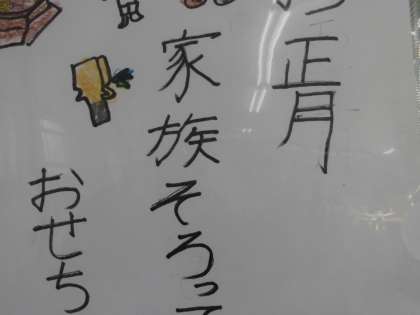 正月
家族そろって
おせち